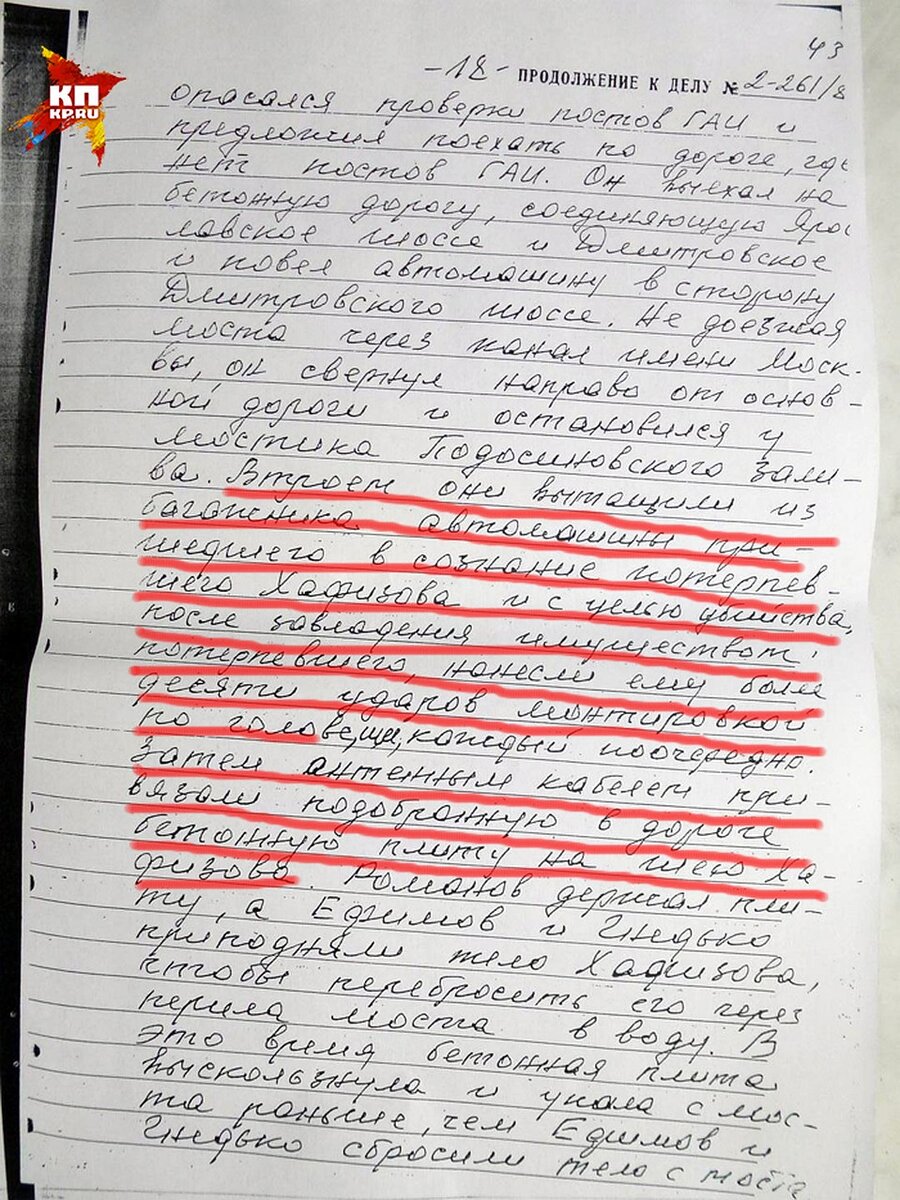 43
-18- ПРОДОЛЖЕНИЕ К ДЕЛУ № 2-261/8
КП
KP.RU
опасался проверки постов ГАИ и
предложил поехать по дороге, где
нет постов ГАИ. Он выехал на
бетонную дорогу, соединяющую Ярос
лавское шоссе и Дмитровское
и повел автомашину в сторону
Дмитровского шоссе. Не доезжая
моста через канал имени Моск-
вы, он свернул направо от основ-
ной дороги и остановился у
мостика Подосиновского зали-
ва. Втроем они вытащили из
багажника автомашины при-
шедшего в сознание потерпев-
шего Хафизова и с целью убийства,
после завладения имуществом
потерпевшего, нанесли ему более
десяти ударов монтировкой
по голове, каждый поочередно.
Затем антенным кабелем при-
вязали подобранную в дороге
бетонную плиту на шею Ха-
физова. Романов держал пли-
ту, а Ефимов и Гнедько
приподняли тело Хафизова,
чтобы перебросить его через
перила моста в воду. В
это время бетонная плита
выскользнула и упала с мос-
та раньше, чем Ефимов и
Гнедько сбросили тело с моста